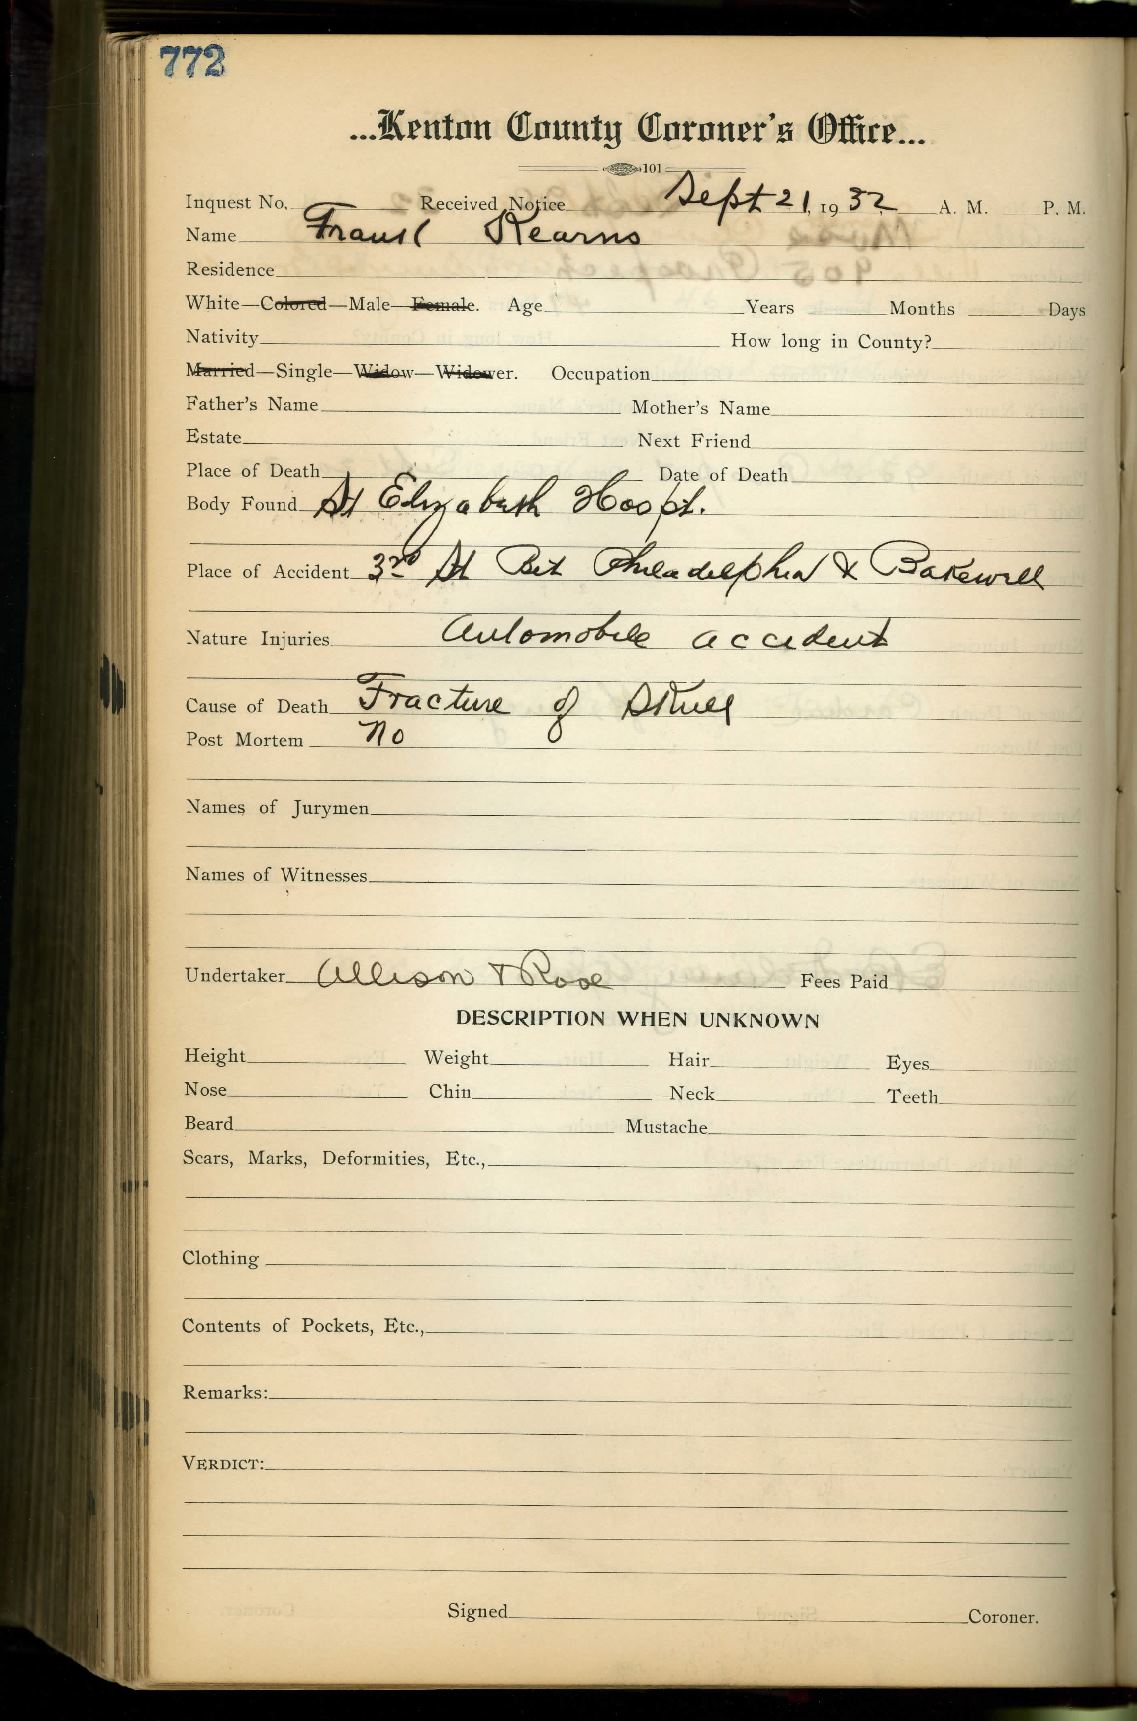 772
...Kenton County Coroner's Office...
101
Inquest No. Received Notice Sept 21, 1932 A. M. P. M.
Name Frank Kearns
Residence
White—Colored—Male—Female. Age Years Months Days
Nativity How long in County?
Married—Single—Widow—Widower. Occupation
Father's Name Mother's Name
Estate Next Friend
Place of Death Date of Death
Body Found St Elizabeth Hospt.
Place of Accident 3rd St Bet Philadelphia & Bakewell
Nature Injuries Automobile accident
Cause of Death Fracture of Skull
Post Mortem No
Names of Jurymen
Names of Witnesses
Undertaker Allison & Rose Fees Paid
DESCRIPTION WHEN UNKNOWN
Height Weight Hair Eyes
Nose Chin Neck Teeth
Beard Mustache
Scars, Marks, Deformities, Etc.,
Clothing
Contents of Pockets, Etc.,
Remarks:
VERDICT:
Signed Coroner.